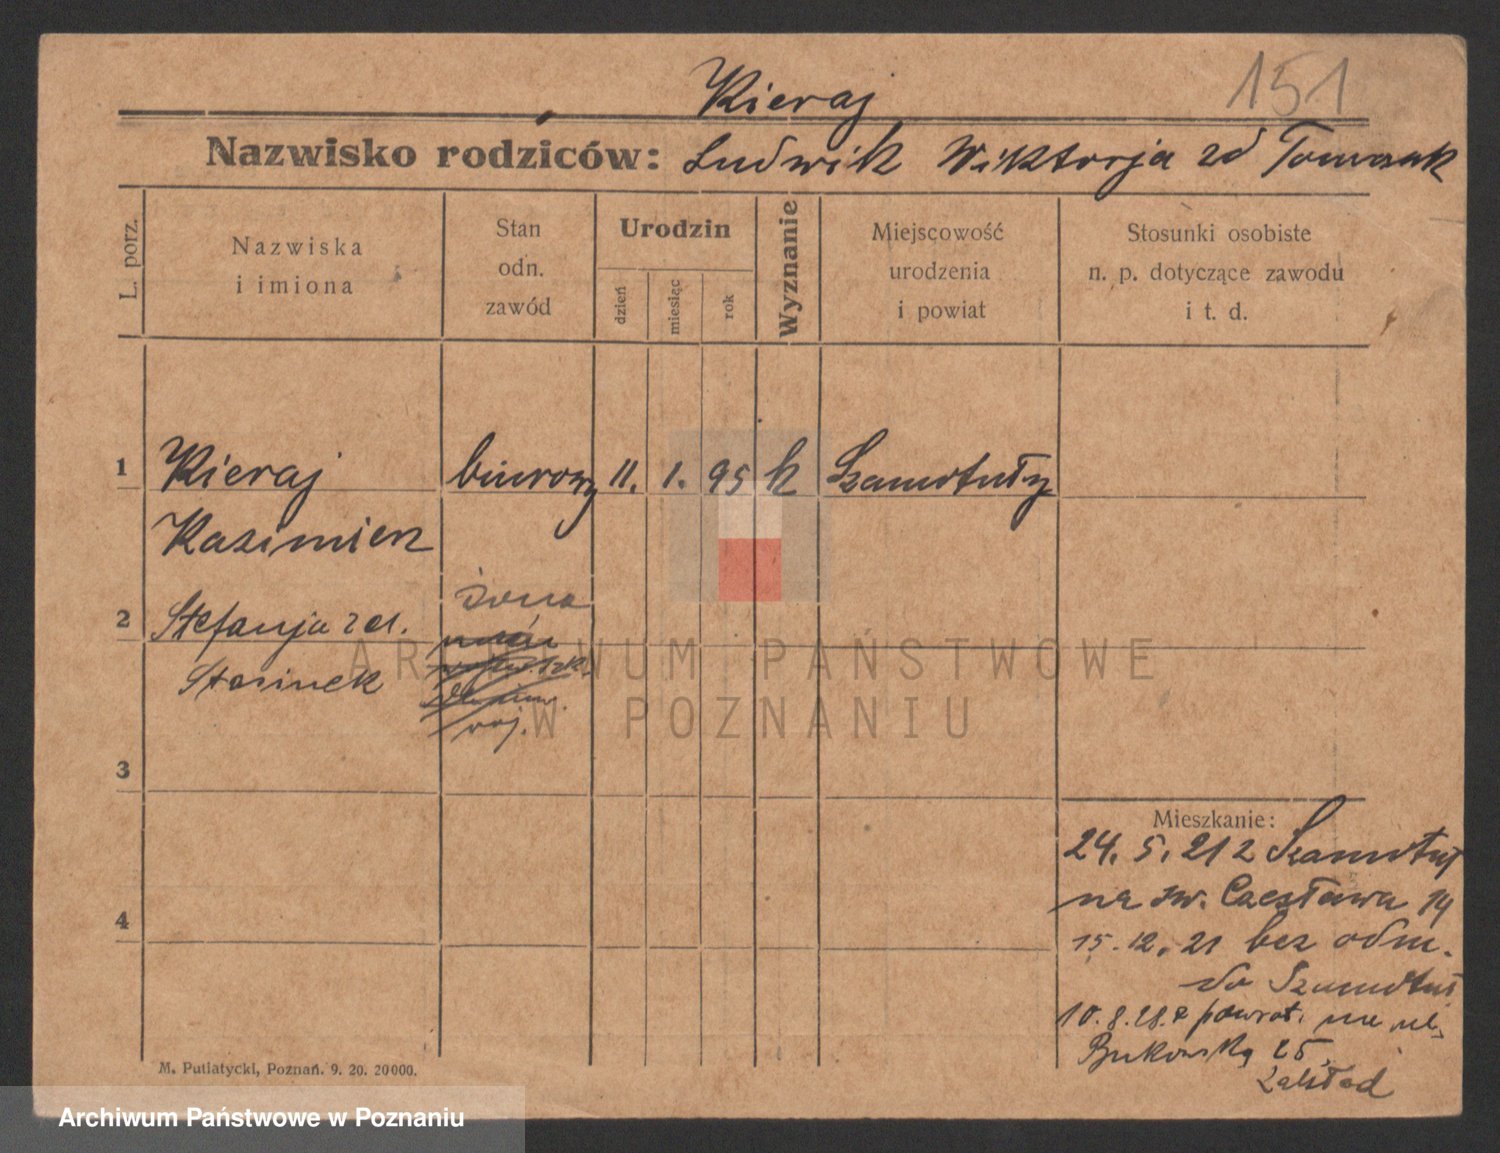 Kieraj
151
Nazwisko rodziców: Ludwik Wiktorja zd Tomczak
L. porz.
Nazwiska
i imiona
Stan
odn.
zawód
Urodzin
dzień
miesiąc
rok
Wyznanie
Miejscowość
urodzenia
i powiat
Stosunki osobiste
n. p. dotyczące zawodu
i t. d.
1 Kieraj biurowy 11. 1. 95 k Szamotuły
Kazimierz
2 Stefanja zd. żona
Stasinek
3
4
Mieszkanie:
24. 5. 21 z Szamotuł
na św. Czesława 14
15. 12. 21 bez odm.
do Szamotuł
10.8.28. powrot. na ul.
Bukowską 25,
M. Putiatycki, Poznań. 9. 20. 20000.
ARCHIWUM PAŃSTWOWE
W POZNANIU
Archiwum Państwowe w Poznaniu